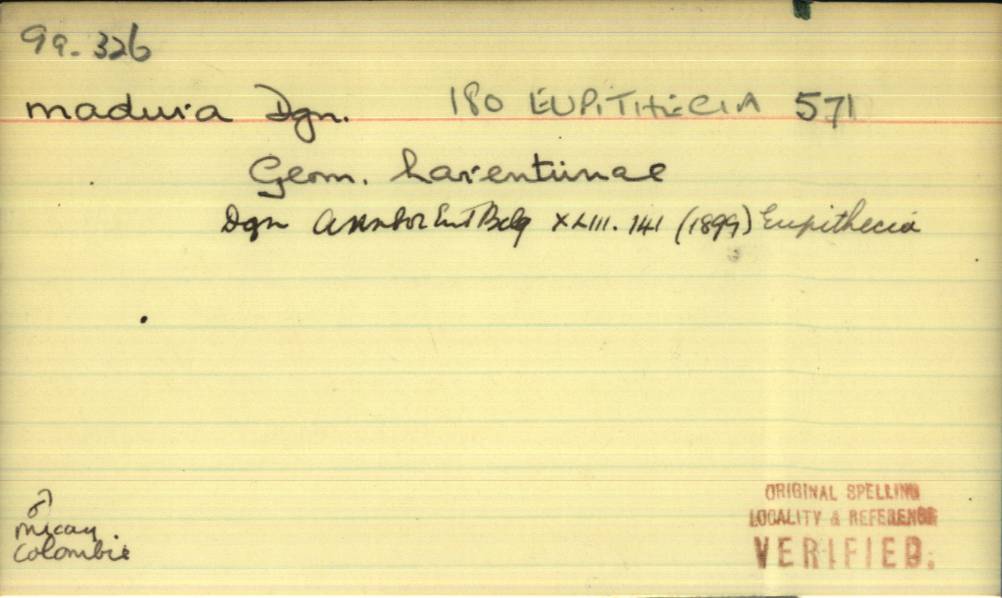 99.326
madura Dgn. 180 EUPITHECIA 571
Geom. Larentiinae
Dgn Ann Soc Ent Belg XLIII. 141 (1899) Eupithecia
♂
Micay.
Colombie
ORIGINAL SPELLING
LOCALITY & REFERENCE
VERIFIED.